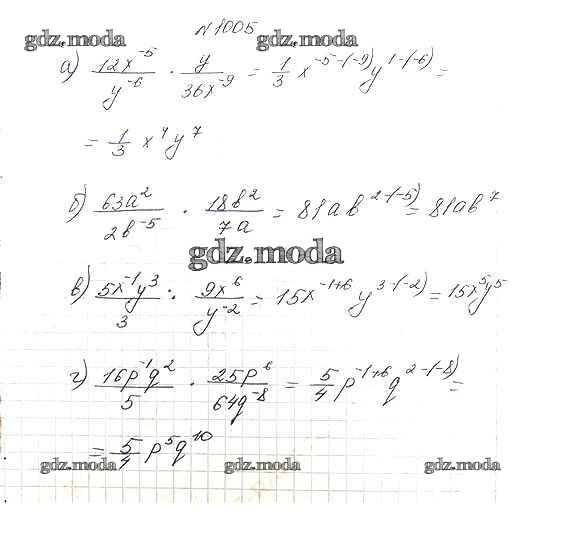 №1005
gdz.moda gdz.moda
а) 12x⁻⁵/y⁻⁶ · y/36x⁻⁹ = 1/3 x⁻⁵⁻⁽⁻⁹⁾y¹⁻⁽⁻⁶⁾ =
= 1/3 x⁴y⁷
б) 63a²/2b⁻⁵ · 18b²/7a = 81ab²⁻⁽⁻⁵⁾ = 81ab⁷
gdz.moda
в) 5x⁻¹y³/3 · 9x⁶/y⁻² = 15x⁻¹⁺⁶y³⁻⁽⁻²⁾ = 15x⁵y⁵
г) 16p⁻¹q²/5 · 25p⁶/64q⁻⁸ = 5/4 p⁻¹⁺⁶q²⁻⁽⁻⁸⁾ =
= 5/4 p⁵q¹⁰
gdz.moda gdz.moda gdz.moda